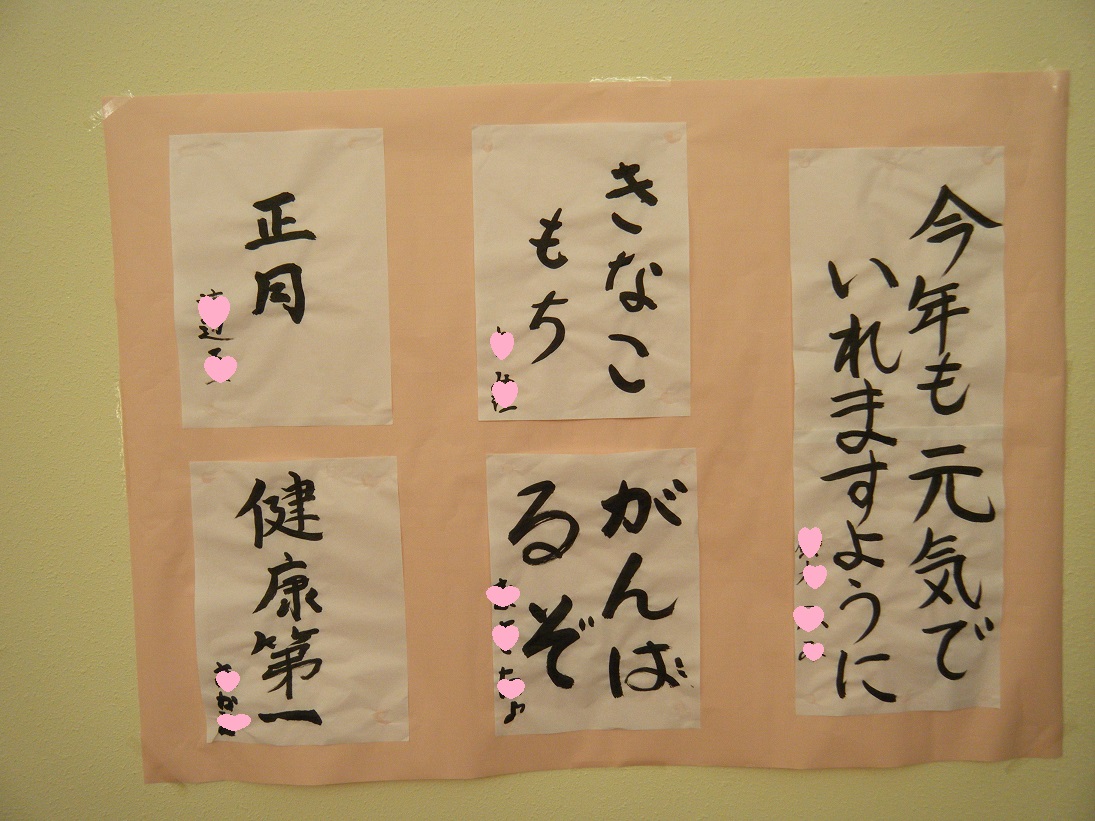 今年も元気で
いれますように
きなこ
もち
がんば
るぞ
正月
健康第一